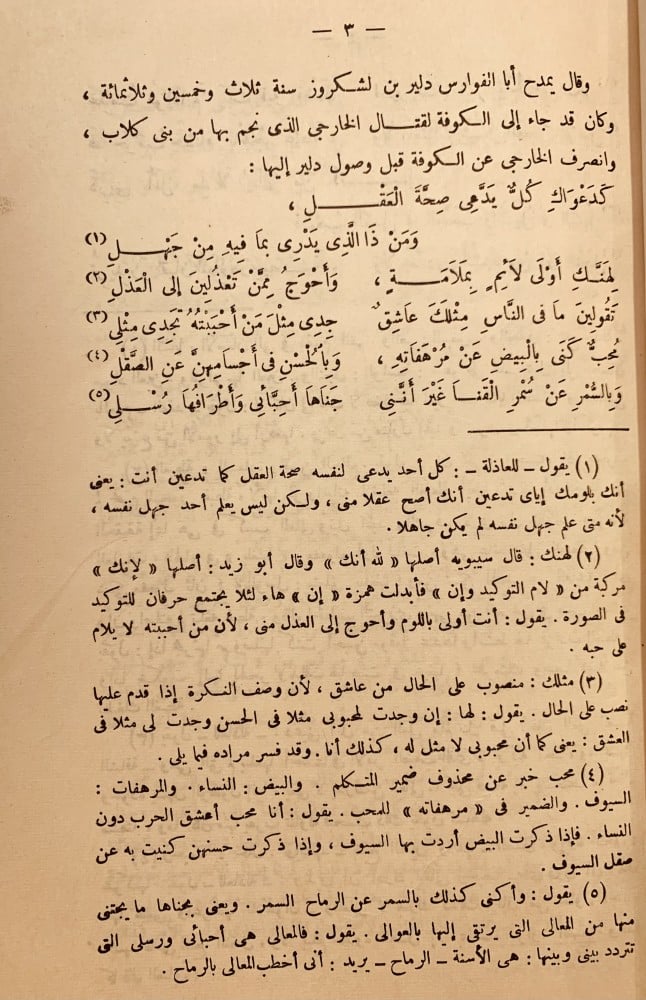 — ٣ —
وقال يمدح أبا الفوارس دلير بن لشكروز سنة ثلاث وخمسين وثلاثمائة ،
وكان قد جاء إلى الكوفة لقتال الخارجى الذى نجم بها من بنى كلاب ،
وانصرف الخارجى عن الكوفة قبل وصول دلير إليها :
كَدَعْوَاكِ كُلٌّ يَدَّعِى صِحَّةَ الْعَقْلِ ،
وَمَنْ ذَا الَّذِى يَدْرِى بمَا فِيهِ مِنْ جَهْلِ (١)
لِهَنَّكِ أَوْلَى لَائِمٍ بِمَلَامَةٍ ، وَأَحْوَجُ مِمَّنْ تَعْذُلِينَ إلى الْعَذْلِ (٢)
تَقُولِينَ مَا فى النَّاسِ مِثْلَكَ عَاشِقٌ جِدِى مِثْلَ مَنْ أَحْبَبْتُهُ تَجِدِى مِثْلِى (٣)
مُحِبٌّ كَنَى بِالْبِيضِ عَنْ مُرْهَفَاتِهِ ، وَبِالْحُسْنِ فى أَجْسَامِهِنَّ عَنِ الصَّقْلِ (٤)
وَبِالسُّمْرِ عَنْ سُمْرِ الْقَنَا غَيْرَ أَنَّنِى جَنَاهَا أَحِبَّائِى وَأَطْرَافُهَا رُسْلِى (٥)
(١) يقول ــ للعاذلة ــ : كل أحد يدعى لنفسه صحة العقل كما تدعين أنت : يعنى
أنك بلومك إياى تدعين أنك أصح عقلا منى ، ولكن ليس يعلم أحد جهل نفسه ،
لأنه متى علم جهل نفسه لم يكن جاهلا .
(٢) لهنك : قال سيبويه أصلها « لله أنك » وقال أبو زيد : أصلها « لإنك »
مركبة من « لام التوكيد وإن » فأبدلت همزة « إن » هاء لئلا يجتمع حرفان للتوكيد
فى الصورة . يقول : أنت أولى باللوم وأحوج إلى العذل منى ، لأن من أحببته لا يلام
على حبه .
(٣) مثلك : منصوب على الحال من عاشق ، لأن وصف النكرة إذا قدم عليها
نصب على الحال . يقول : لها : إن وجدت لمحبوبى مثلا فى الحسن وجدت لى مثلا فى
العشق : يعنى كما أن محبوبى لا مثل له ، كذلك أنا . وقد فسر مراده فيما يلى .
(٤) محب خبر عن محذوف ضمير المتكلم . والبيض : النساء . والمرهفات :
السيوف . والضمير فى « مرهفاته » للمحب . يقول : أنا محب أعشق الحرب دون
النساء . فإذا ذكرت البيض أردت بها السيوف ، وإذا ذكرت حسنهن كنيت به عن
صقل السيوف .
(٥) يقول : وأكنى كذلك بالسمر عن الرماح السمر . ويعنى بمجناها ما يجتنى
منها من المعالى التى يرتقى إليها بالعوالى . يقول : فالمعالى هى أحبائى ورسلى التى
تتردد بينى وبينها : هى الأسنة ــ الرماح ــ يريد : أنى أخطب المعالى بالرماح .